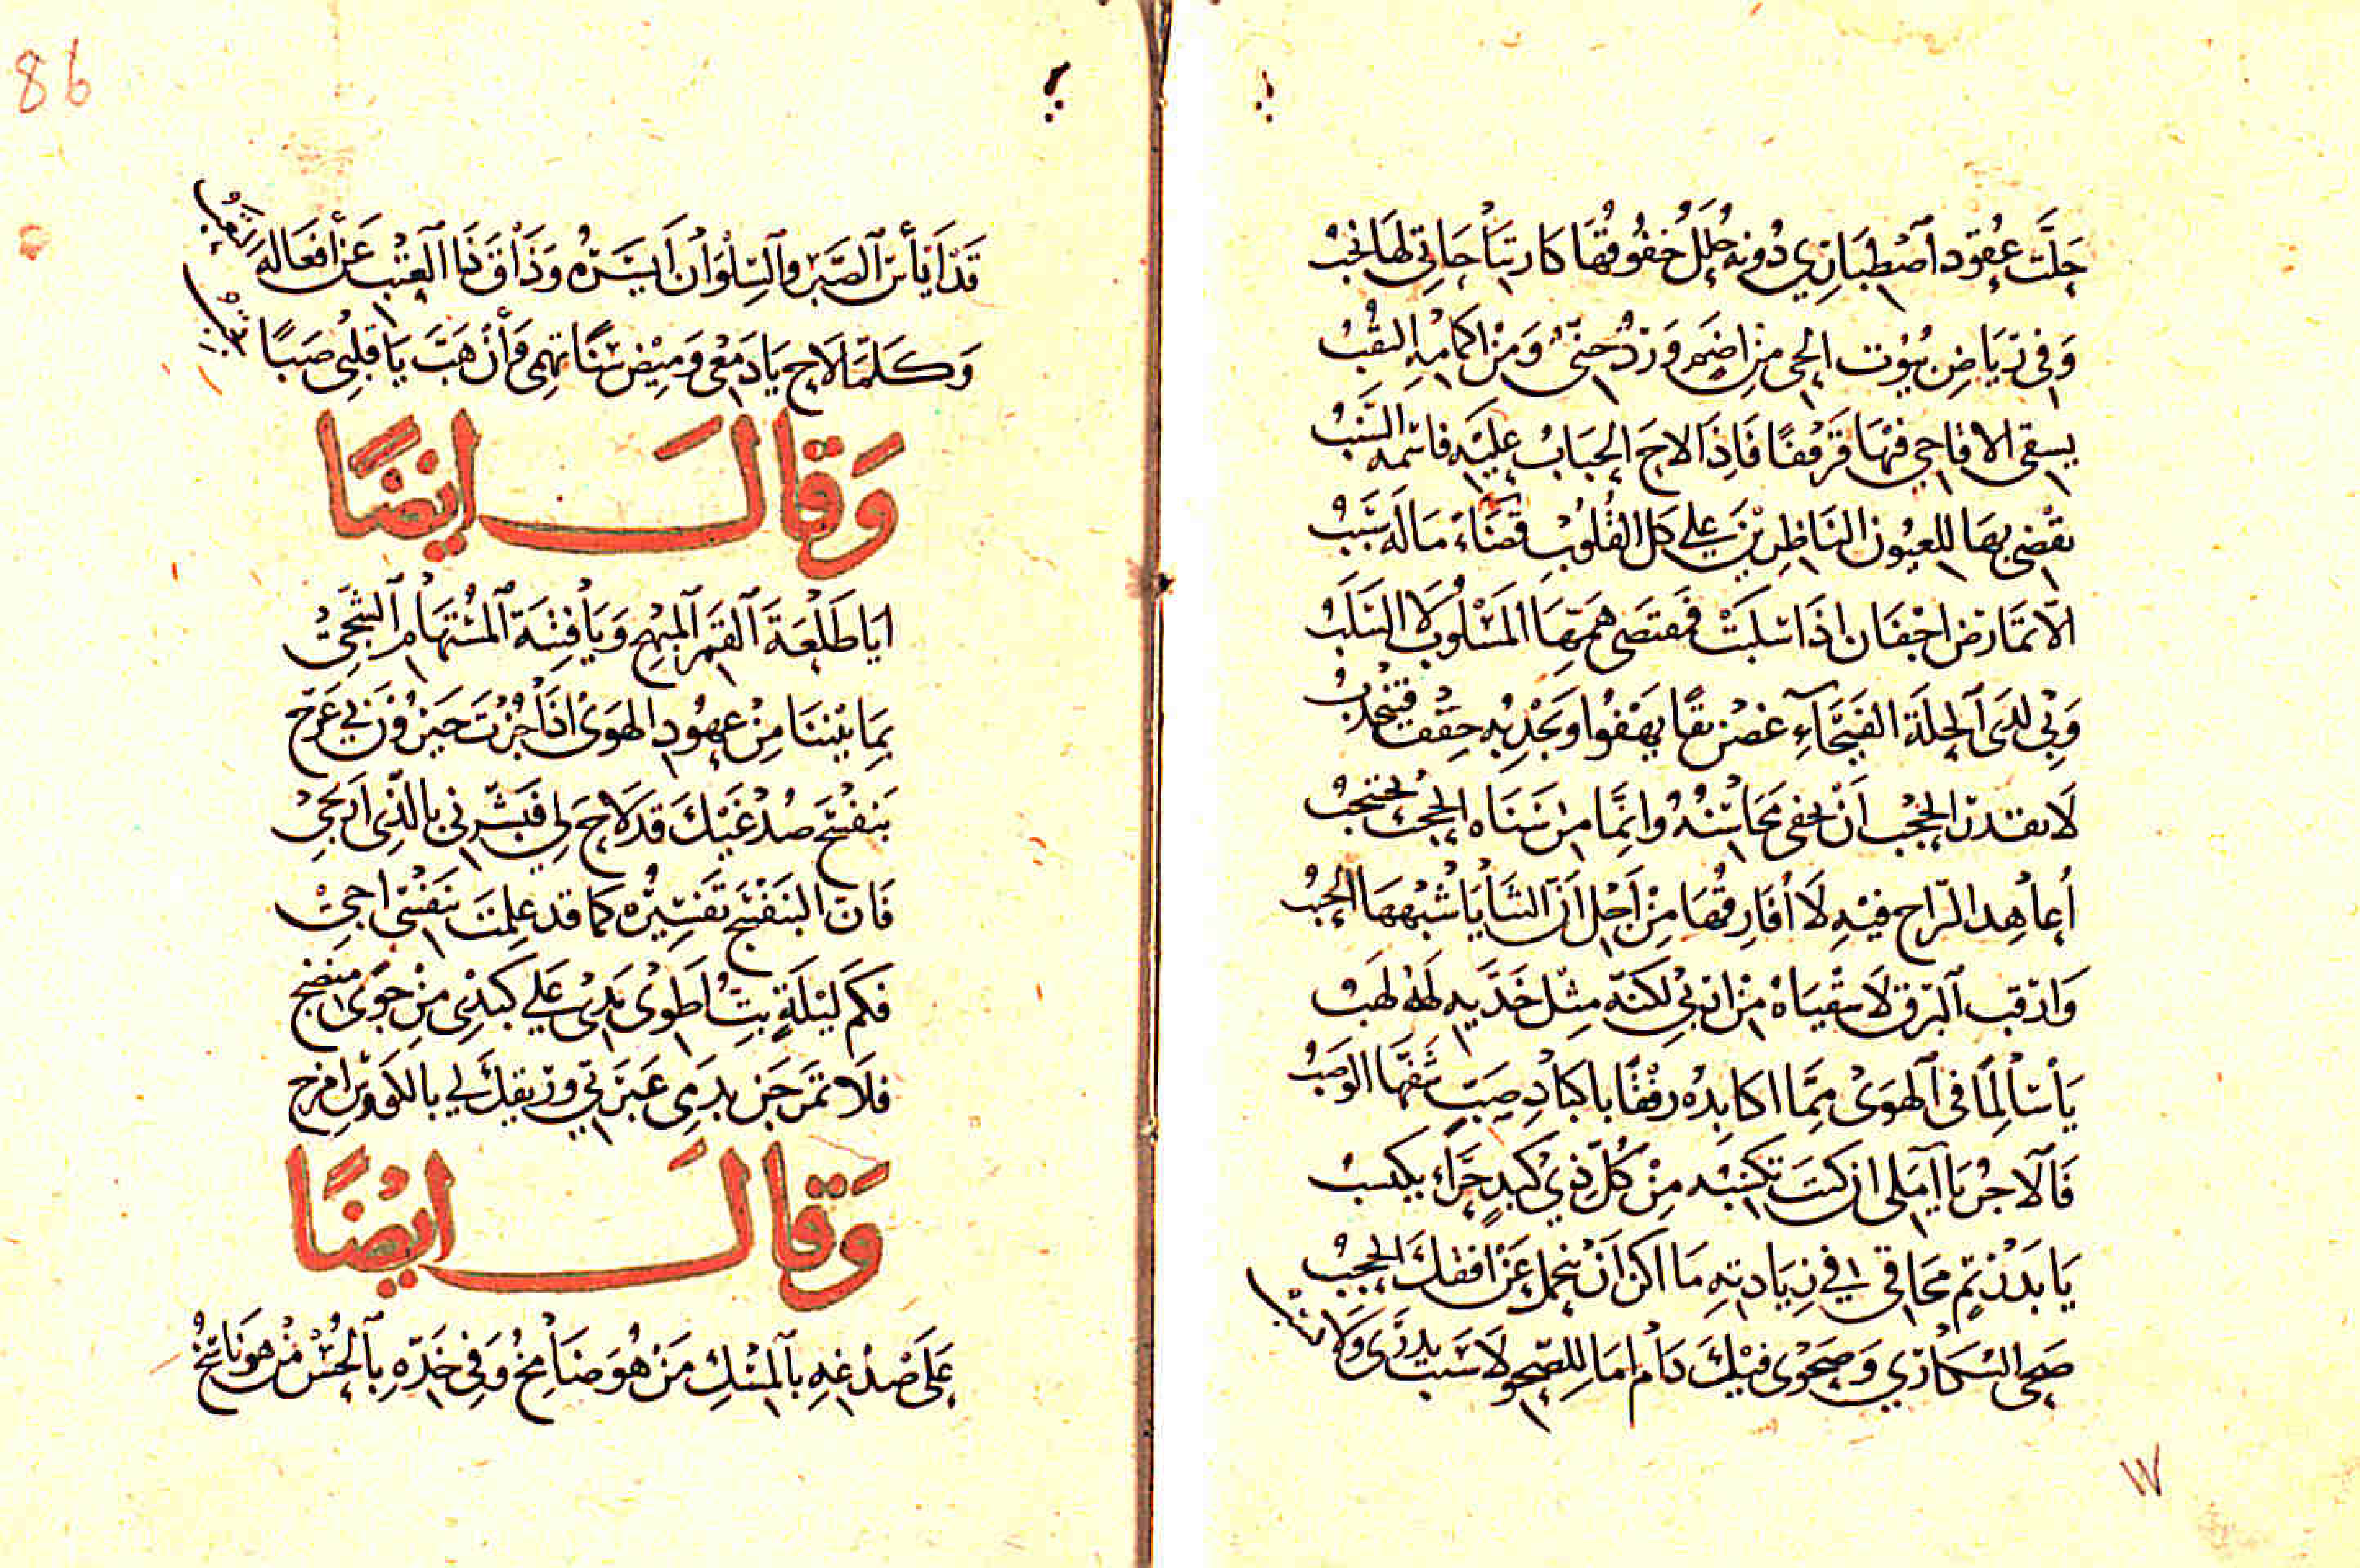 حَلَّت عُقود اصْطِبَارِي دُونه حُلَلٌ خُفُوقُهَا كارتياحاتي لهَا نجبُ
وَفى رِيَاضِ بُيُوت الحى مِن اضمٍ وَرْدٌ جنىٌّ وَمِنْ اكمامِهِ النقُبُ
يسقى الاقاحي منهَا قَرقفًا فَاِذَا لاحَ الحَبَابُ عليْهِ فاسْمه الشَنَبُ
يقضى بهَا للعيُون النَاظِرِيْنَ علي كل القلُوْبِ قضَاءٌ مَا لَه سَبَبُ
الّا تمَارضُ اجْفان اذَا سَلبَتْ فمقتضى همّهَا المَسْلوبُ لا السَلَبُ
وَبي لدَى الحلة الفَيْحَآءِ غصْن نقًا يهْفُوا وَيَجْذِبُه حِقْف فينجذبُ
لَا تقدر الحجْب أنْ تخفى مَحَاسِنُهُ وانمَّا من سَنَاه الحجبُ تحتجبُ
أُعاهِد الرّاح فيْهِ لَا أُفَارِقُهَا مِنْ اَجْلِ أنّ الثنَايَا شُبْهُهَا الحببُ
وَارْقبُ البَرْق لَا سقْيَاهُ مِنْ اربِي لكنّه مثل خَدَّيه لَهُ لَهَبُ
يَا سَالِمًا فى الهَوَى مِمَّا اكابِدُه رِفْقًا باكبادِ صَبٍّ شفّهَا الوَصَبُ
فَالاجْرُ يَا امَلى ان كنتَ تكسِبُه مِنْ كُلّ ذِي كبدٍ حَرَّاءَ يكتسبُ
يَا بَدْرَ تِمٍّ محَاقى فى زِيَادَتِهِ مَا اكن أنْ ينجَلى عَنْ افقكَ الحجبُ
صَحى السُكَارَي وَصَحوِى فيْكَ دَام امَا للصّحو لا سَبب يدرَى وَلا نسَبُ
١٧
86
قَدْ أيأس الصَّبر والسِلوَان أيسَرُه وَذَاقَنَا العَتْب عَنْ أفعَاله تعَبُ
وَكلمَّا لاح يَا دَمْعى وَمِيْض سَنًا تهمى وَأنْ هَبّ يَا قلبِى صَبًا تجبُ
وَقالَ ايضًا
ايَا طَلْعَةَ القَمَر المبْهِج وَيَا فِتنَة المسْتهَام الشَجِىْ
بِمَا بَيْننَا مِنْ عهُودِ الهَوَى اذَا جُزْتَ حَيّز وُزنِي عَرّجِ
بَنفسَج صُدْغَيْكَ قد لَاحَ لِي فبَشِّرنى بالّذى ارتجِيْ
فَان البَنفسَج تفسِيْره كمَا قد علِمتَ بنَفْسى احىْ
فكم لَيْلَةٍ بِتُّ اطوِى يَدِىْ عَلى كَبدِى مِنْ جوًى منضجِ
فلَا تمْزجَن بدَمِى عَبْرَتِي وريقكَ لِي بالكوثرِ امزجِ
وَقالَ ايضًا
عَلَى صُدْغِهِ بالمِسْكِ مَنْ هُوَ ضَامِخُ وَفِى خَدّه بِالحُسْن مَن هو نَاسِخُ